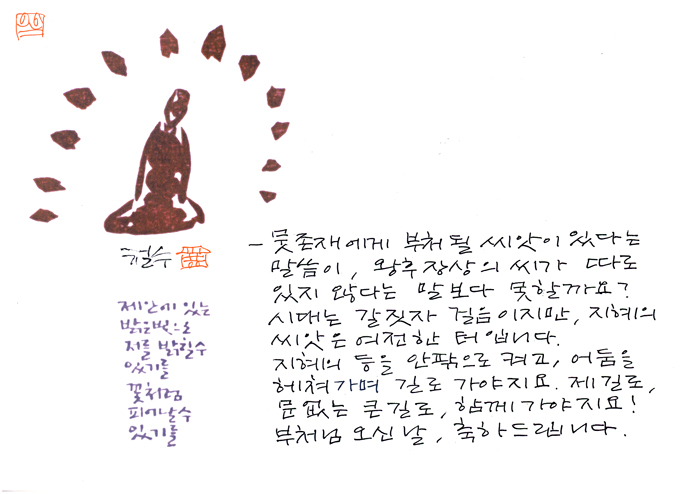 철수
제안에 있는
밝은빛으로
저를 밝힐수
있기를
꽃처럼
피어날수
있기를
– 뭇존재에게 부처될 씨앗이 있다는
말씀이, 왕후장상의 씨가 따로
있지 않다는 말보다 못할까요?
시대는 갈짓자 걸음이지만, 지혜의
씨앗은 여전한 터입니다.
지혜의 등을 안팎으로 켜고, 어둠을
헤쳐가며 길로 가야지요. 제길로,
문없는 큰길로, 함께가야지요!
부처님 오신날, 축하드립니다.